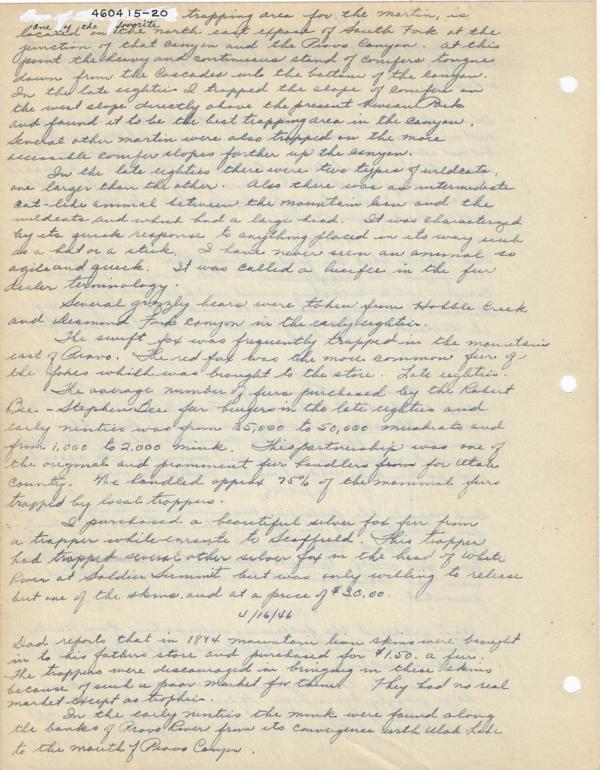 460415-20
one of the favorite trapping area for the martin, is
located on the north east expose of South Fork at the
junction of that Canyon and the Provo Canyon. At this
point the heavy and continuous stand of conifers tongue
down from the Cascades into the bottom of the canyon.
In the late eighties I trapped the slope of conifers on
the west slope directly above the present Vivian Park
and found it to be the best trapping area in the canyon.
Several other martin were also trapped on the more
accessible conifer slopes farther up the canyon.
In the late eighties there were two types of wildcats,
one larger than the other. Also there was an intermediate
cat-like animal between the mountain lion and the
wildcats and which had a large head. It was characterized
by its quick response to anything placed in its way such
as a hat or a stick. I have never seen an animal so
agile and quick. It was called a lucifee in the fur
dealer terminology.
Several grizzly bears were taken from Hobble Creek
and Diamond Fork Canyon in the early eighties.
The swift fox was frequently trapped in the mountains
east of Provo. The red fox was the more common fur of
the foxes which was brought to the store. Late eighties.
The average number of furs purchased by the Robert
Bee - Stephen Bee fur buyers in the late eighties and
early nineties was from 25,000 to 50,000 muskrats and
from 1,000 to 2,000 mink. This partnership was one of
the originals and prominent fur handlers from for Utah
County. We handled approx 75% of the mammal furs
trapped by local trappers.
I purchased a beautiful silver fox fur from
a trapper while enroute to Scoffield. This trapper
had trapped several other silver fox in the head of White
River at Soldier Summit but was only willing to release
but one of the skins and at a price of $30.00.
4/16/46
Dad reports that in 1894 mountain lion skins were brought
in to his fathers store and purchased for $1.50 a fur.
The trappers were discouraged in bringing in these skins
because of such a poor market for them. They had no real
market except as trophies.
In the early nineties the mink were found along
the banks of Provo River from its convergence with Utah Lake
to the mouth of Provo Canyon.